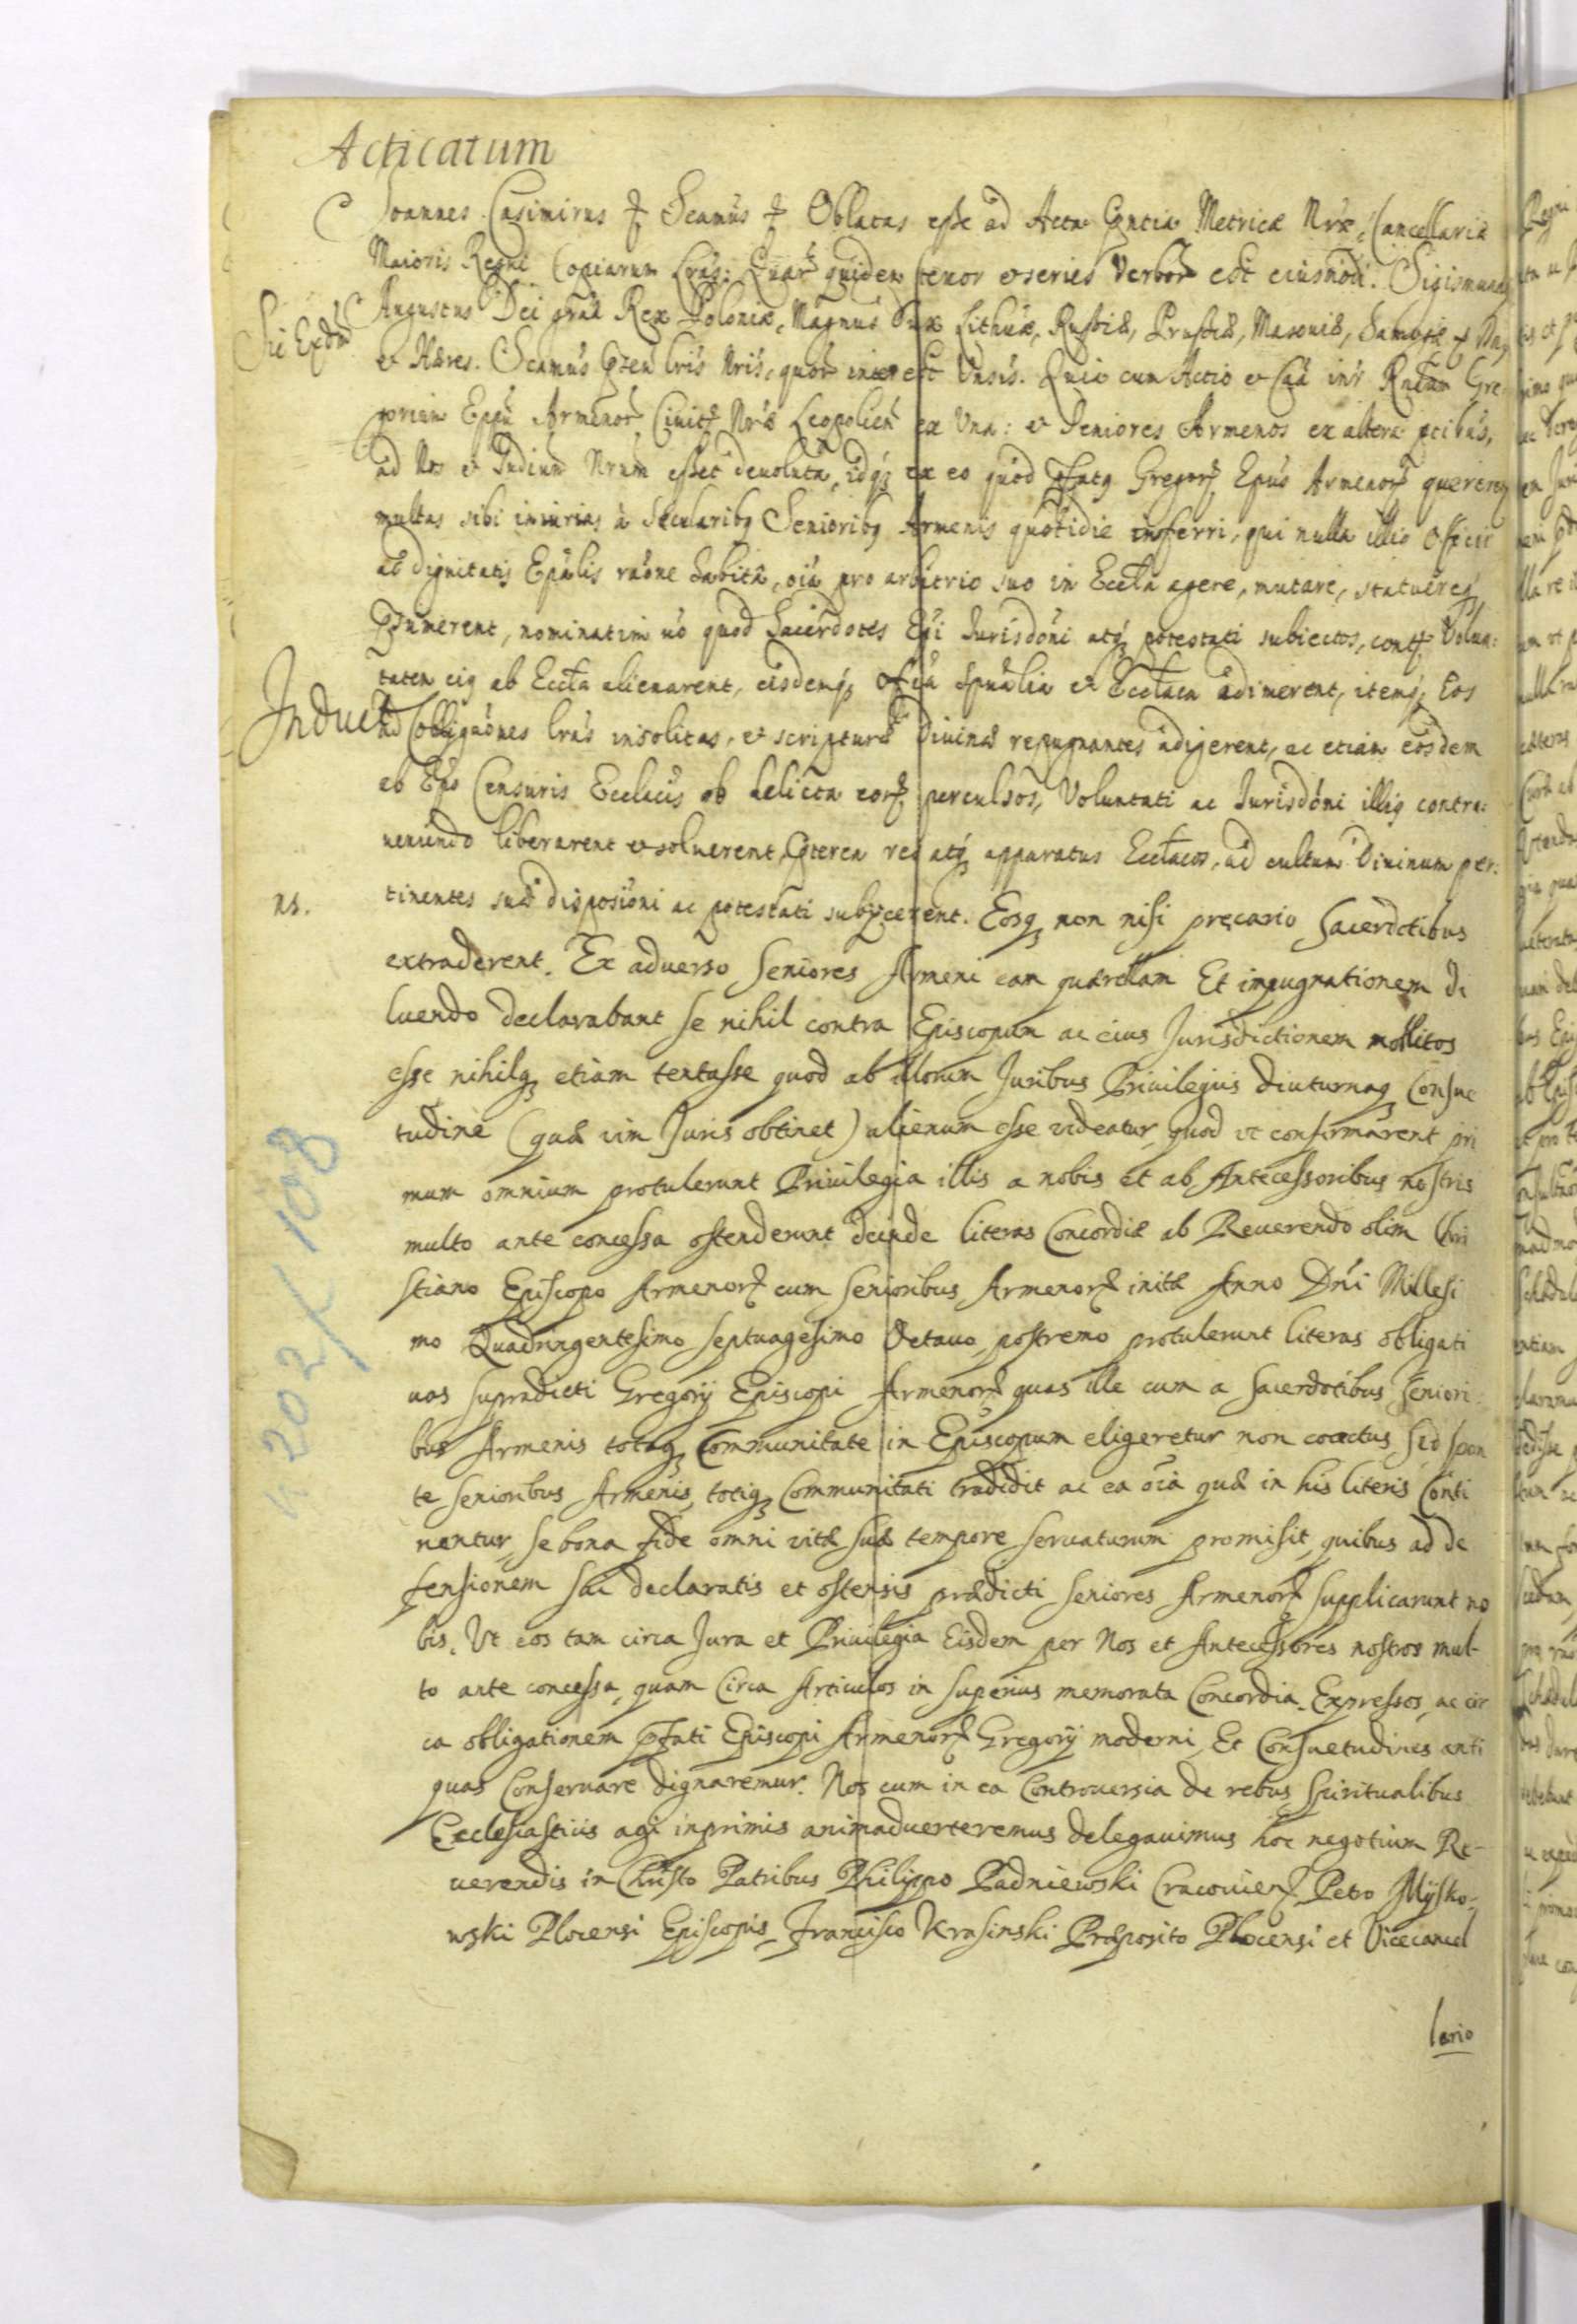 Acticatum
Joannes Casimirus Scamus Oblatas esse ad Acta Metricæ Nræ Cancellariæ
Maioris Regni Copiarum Lras: Quar quidem tenor et series Verbor est eiusmodi. Sigismund
Augustus Dei gratia Rex Poloniæ, Magnus Dux Lithuæ, Russiæ, Prussiæ, Masouiæ, Samotiæ
et Hæres. Scamus lris Nris, quor interest Vnsis. Quia cum Actio et Caa inr Rndum Gre
gorium Eppu Armenor Ciuits Nræ Leopolien ex Vna: et Seniores Armenos ex altera ptibus,
ad Nos et Judium Nrum esset deuoluta, idq ex eo quod pfatq Gregorj Epus Armenor querere
multas sibi iniurias à Secularibq Senioribq Armenis quotidie inferri, qui nulla illiq Officii
ac dignitatis Epalis raone habita, oia pro arbitrio suo in Eccla agere, mutare, statuereq
psumerent, nominatim uo quod Sacerdotes Epi Jurisdoni atq potestati subiectos, contr Volun:
taten eiq ab Eccla alienarent, eisdemq offia Spualia et Ecclaca adimerent, itemq Eos
ad Obligaones lras insolitas, et scripturæ Diuinæ repugnantes adigerent, ac etiam eosdem
Induct
ab Epo Censuris Ecclecis ob delicta eorj perculsos, Voluntati ac Jurisdoni illiq contra:
ueniendo liberarent et soluerent, pterea res atq apparatus Ecclacos, ad cultum Diuinum per:
ns.
tinentes suæ disposioni ac potestati subijcerent. Eosq non nisi precario Sacerdotibus
extraderent. Ex aduerso Seniores Armeni eam quærellam Et impugnationem di
luendo declarabant se nihil contra Episcopum ac eius Jurisdictionem mollitos
esse nihilq etiam tentasse quod ab illorum Juribus Priuilegiis diuturnaq Consue
tudine (quæ vim Juris obtinet) alienum esse videatur, quod ut confirmarent pri
mum omnium protulerunt Priuilegia illis a nobis et ab Antecessoribus nostris
multo ante concessa ostenderunt deinde literas Concordiæ ab Reuerendo olim Chri
stiano Episcopo Armenorj cum Senioribus Armenorj initæ Anno Dni Millesi
mo Quadringentesimo Septuagesimo Octauo, postremo protulerunt literas obligati
uas supradicti Gregorij Episcopi Armenorj quas ille cum a Sacerdotibus Seniori
bus Armenis totaq Communitate in Episcopum eligeretur non coactus Sed spon
te Senioribus Armenis, totiq Communitati tradidit ac ea oia quæ in his literis Conti
nentur, se bona fide omni vitæ suæ tempore seruaturum promisit, quibus ad de
fensionem sui declaratis et ostensis prædicti Seniores Armenorj supplicarunt no
bis. Ut eos tam circa Jura et Priuilegia Eisdem per Nos et Antecessores nostros mul-
to ante concessa, quam Circa Articulos in superius memorata Concordia Expressos, ac cir
ca obligationem pfati Episcopi Armenorj Gregorij moderni, Et Consuetudines anti
quas Conseruare dignaremur. Nos cum in ea Controuersia de rebus Spiritualibus
Ecclesiasticis agi inprimis animaduerteremus delegauimus hoc negotium Re-
uerendis in Christo Patribus Philippo Padniewski Cracouienj Petro Mysko-
wski Plocensi Episcopis, Francisco Krasinski Præposito Plocensi et Vicecancel
lario
4 202/108